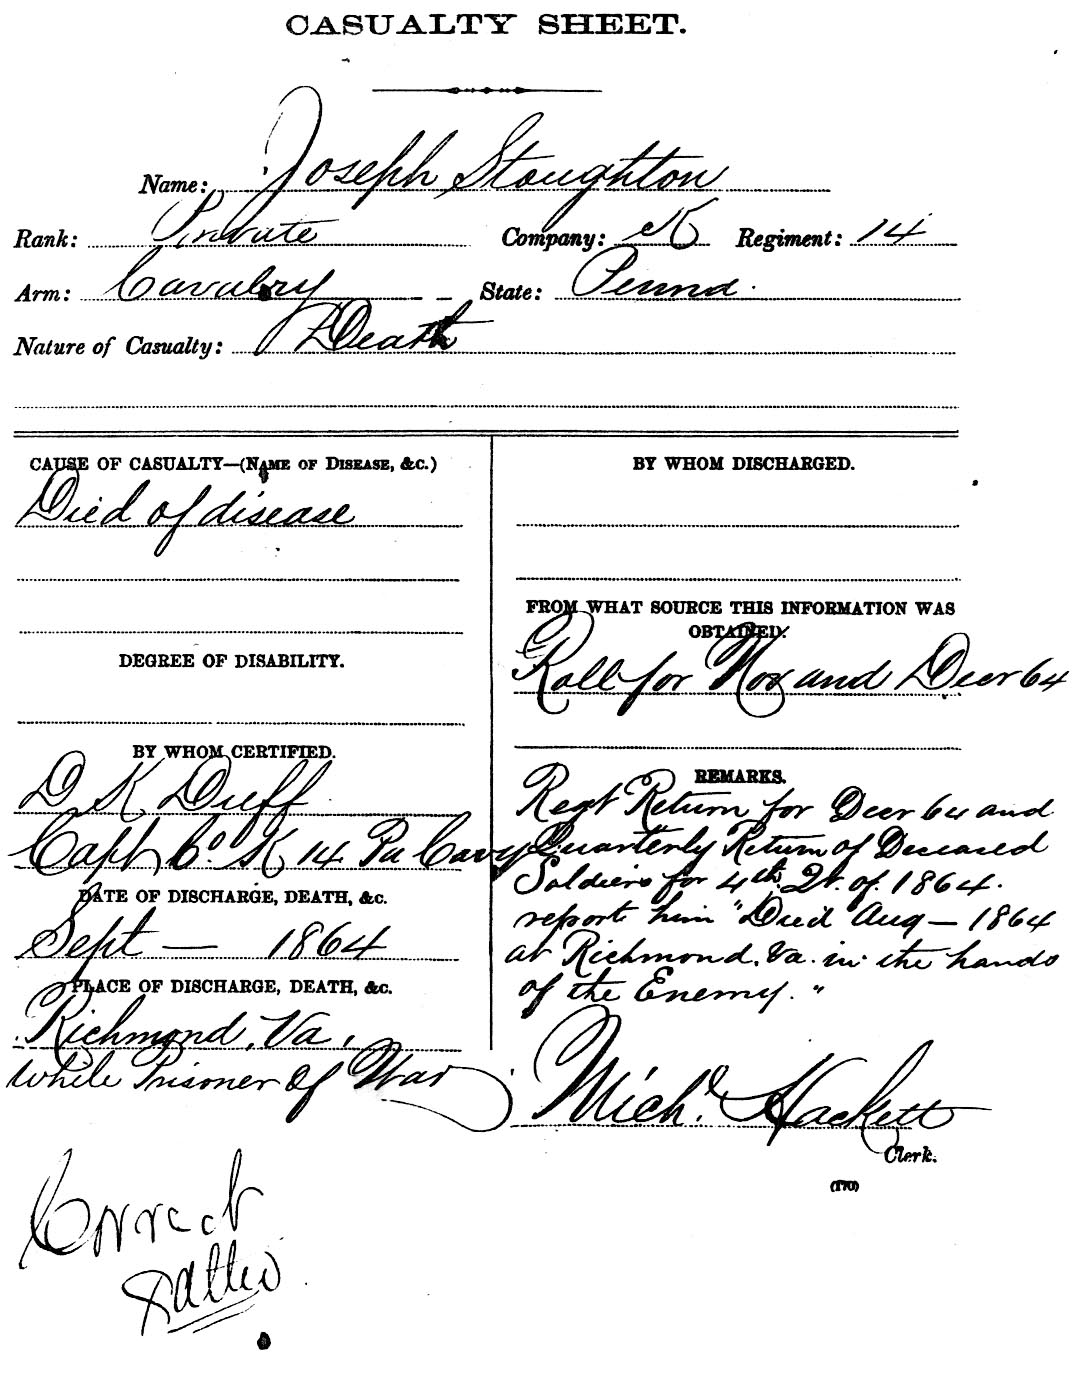 CASUALTY SHEET.
Name: Joseph Stoughton
Rank: Private Company: K Regiment: 14
Arm: Cavalry State: Penna.
Nature of Casualty: Death
CAUSE OF CASUALTY—(NAME OF DISEASE, &C.)
Died of disease
DEGREE OF DISABILITY.
BY WHOM CERTIFIED.
D K Duff
Capt Co K 14 Pa Cavy
DATE OF DISCHARGE, DEATH, &c.
Sept — 1864
PLACE OF DISCHARGE, DEATH, &c.
Richmond, Va,
While Prisoner of War
BY WHOM DISCHARGED.
FROM WHAT SOURCE THIS INFORMATION WAS
OBTAINED.
Roll for Nov and Decr 64
REMARKS.
Regt Return for Decr 64 and
Quarterly Return of Deceased
Soldiers for 4th Qr. of 1864.
report him "Died Aug — 1864
at Richmond, Va. in the hands
of the Enemy."
Michl. Hackett
Clerk.
(170)
Correct